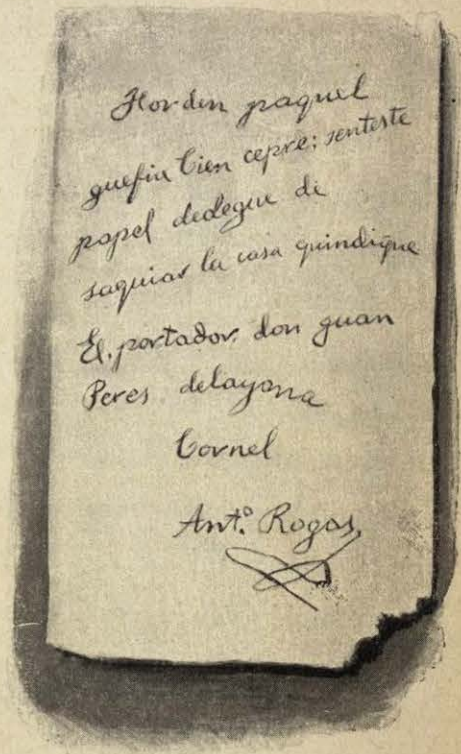 Horden paquel
guefia bien cepre; senteste
papel dedegue di
saquiar la casa quindique
El portador don guan
Peres delayana
Cornel
Ant.º Rogas